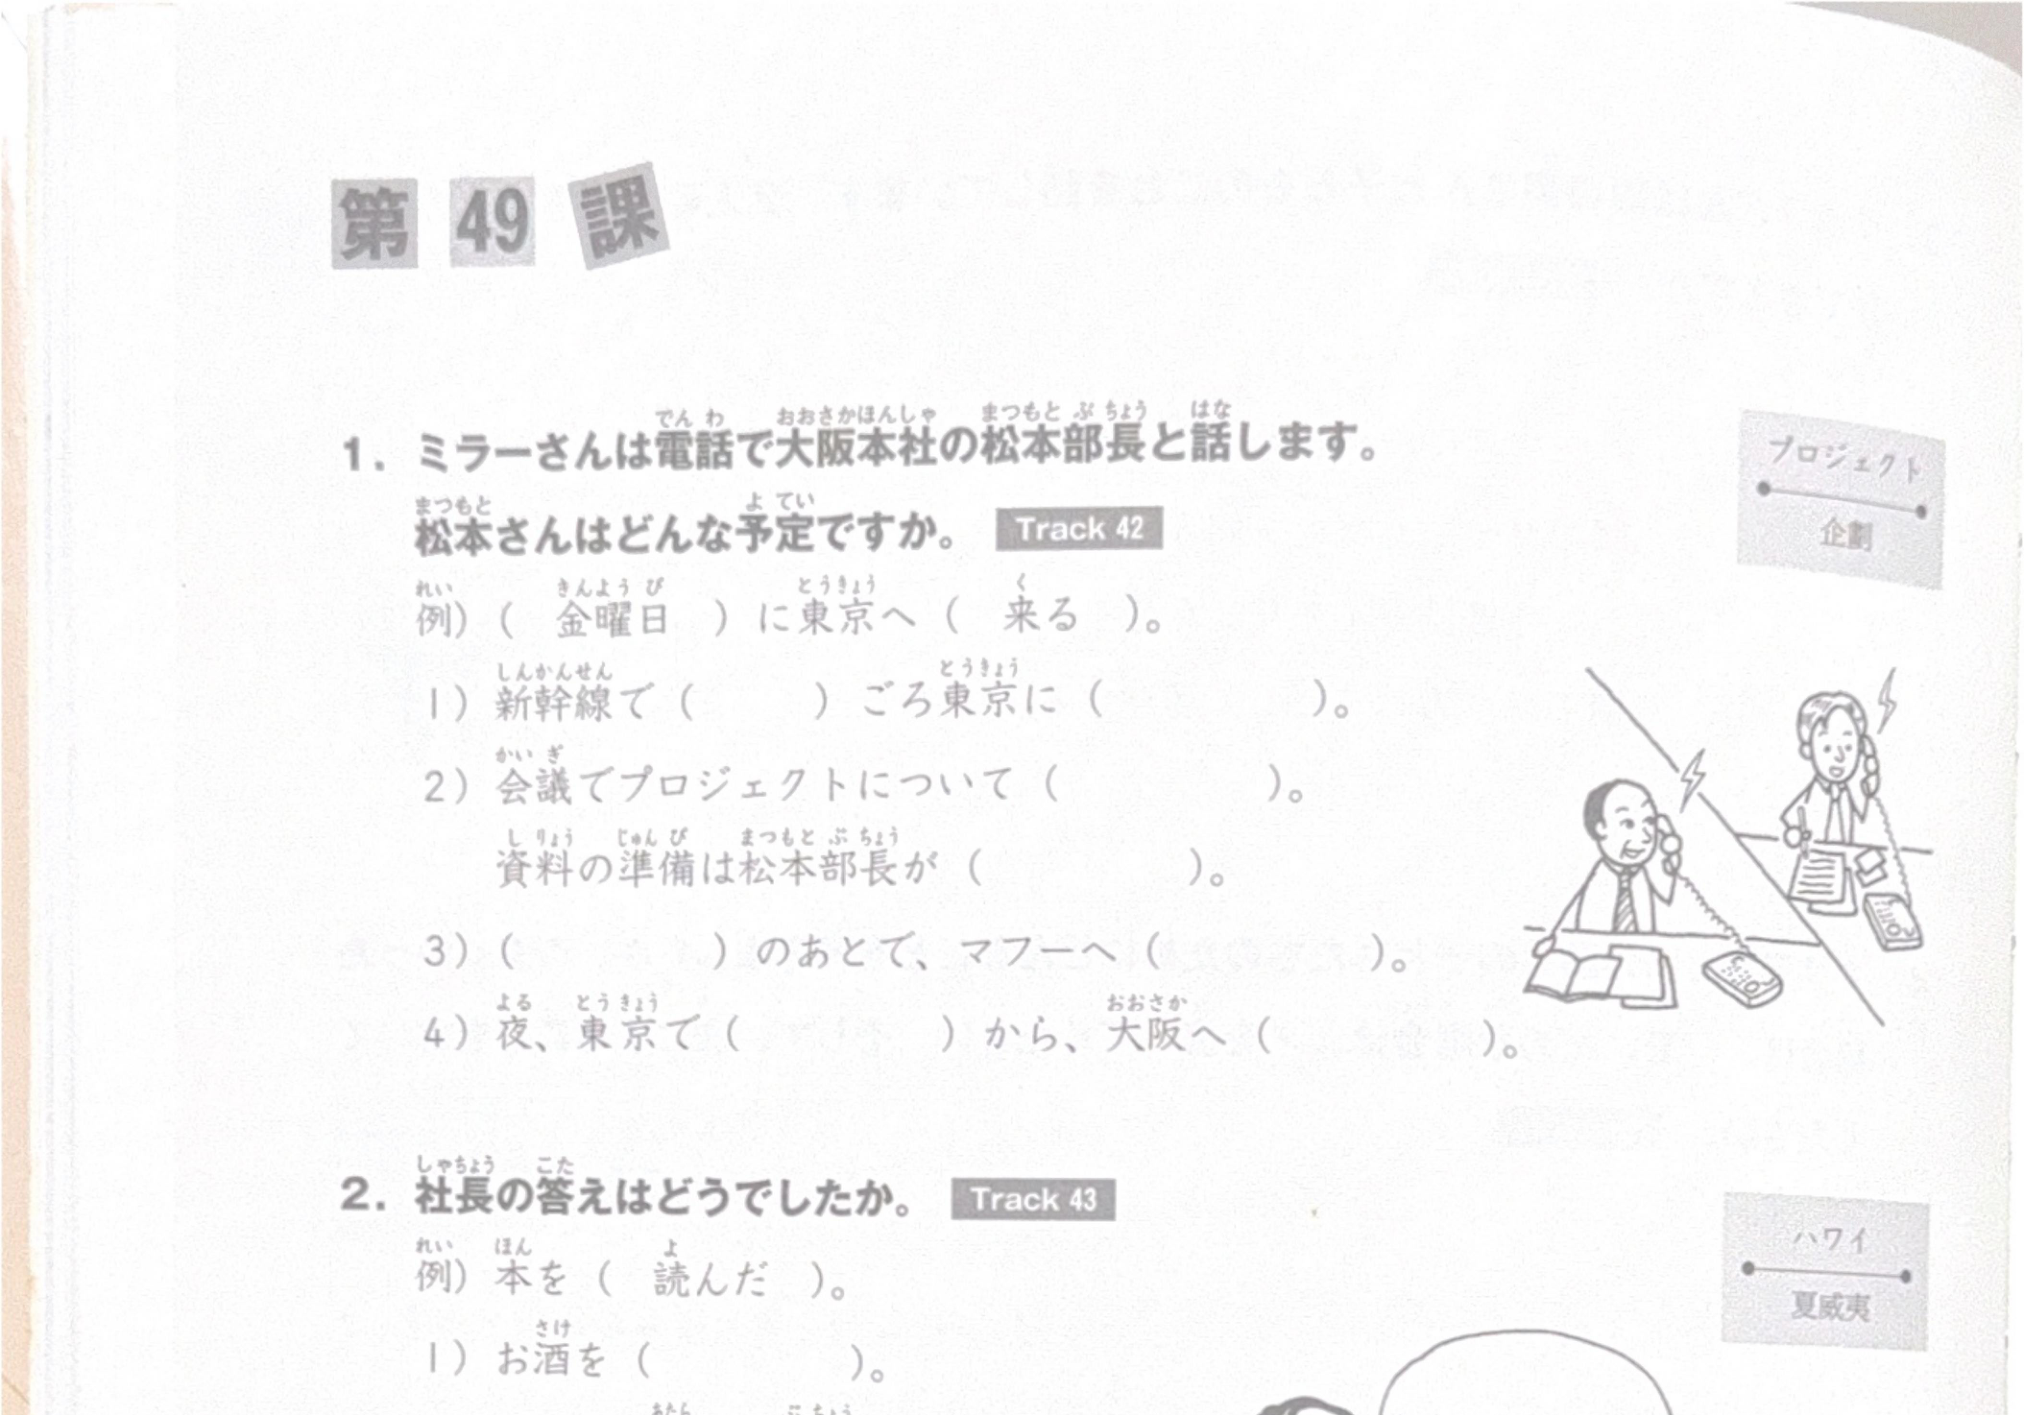 第49課
1. ミラーさんは電話で大阪本社の松本部長と話します。
松本さんはどんな予定ですか。 Track 42
例）（ 金曜日 ）に東京へ（ 来る ）。
1）新幹線で（ ）ごろ東京に（ ）。
2）会議でプロジェクトについて（ ）。
資料の準備は松本部長が（ ）。
3）（ ）のあとで、マフーへ（ ）。
4）夜、東京で（ ）から、大阪へ（ ）。
プロジェクト
企劃
2. 社長の答えはどうでしたか。 Track 43
例）本を（ 読んだ ）。
1）お酒を（ ）。
ハワイ
夏威夷